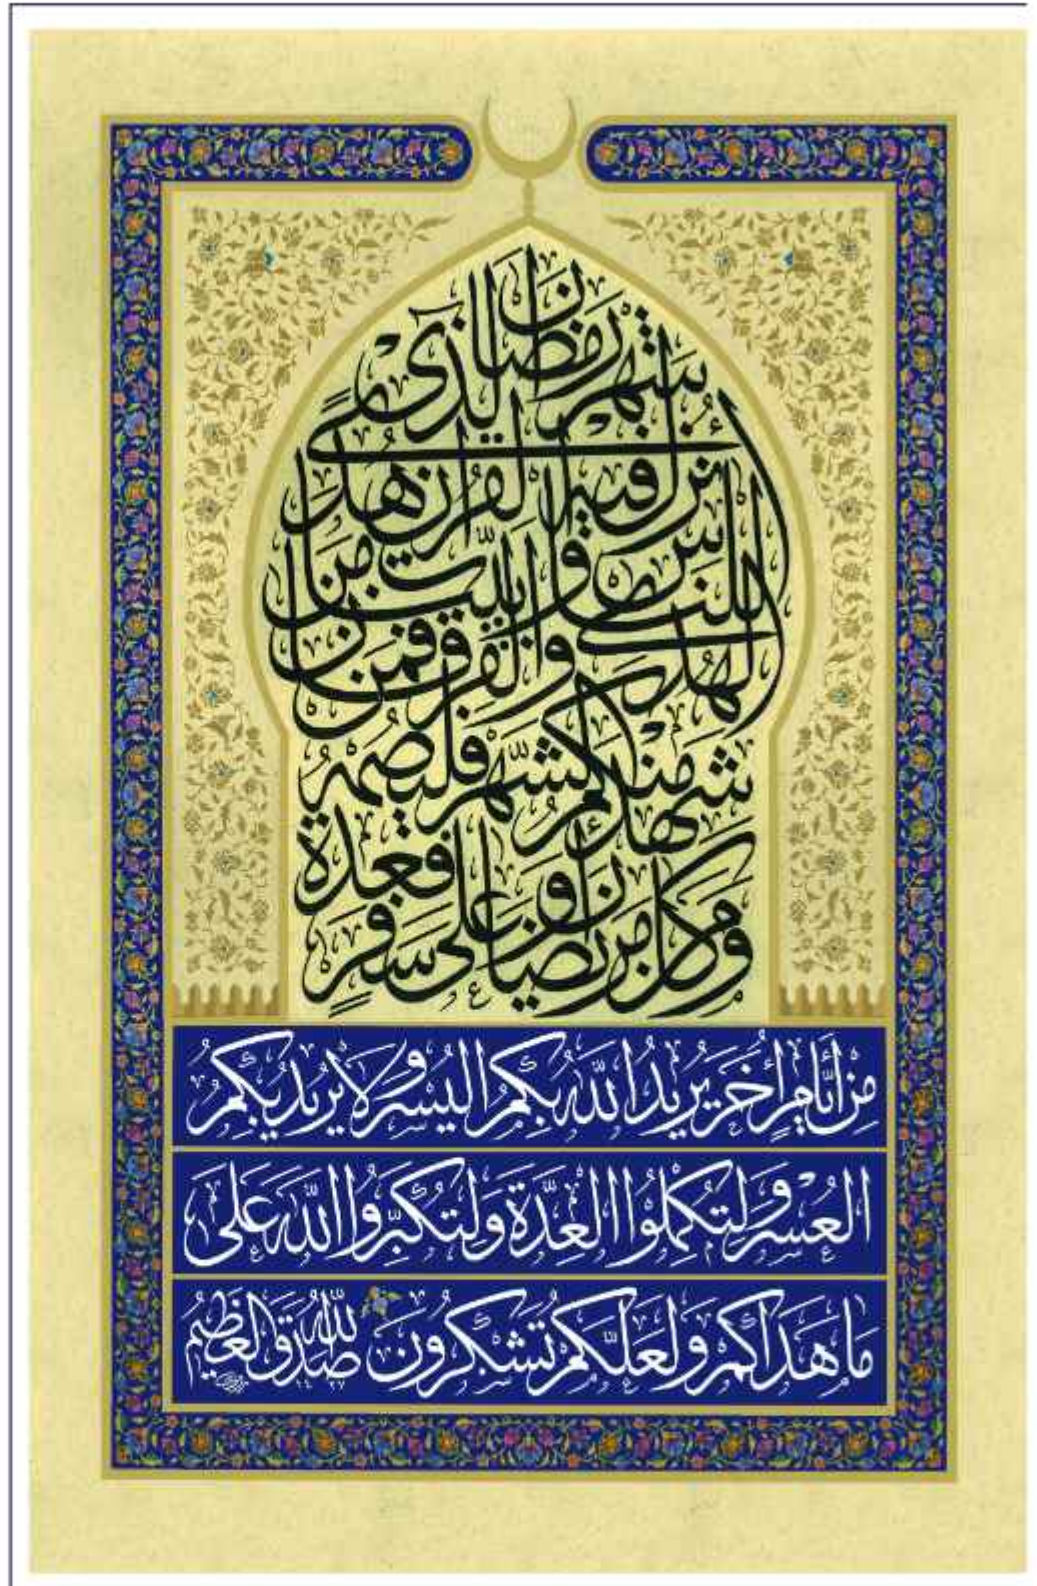 شهر رمضان الذي
أنزل فيه القرآن هدى
للناس وبينت من
الهدى والفرقان فمن
شهد منكم الشهر فليصمه
ومن كان مريضا أو على سفر فعدة
مِنْ أَيَّامٍ أُخَرَ يُرِيدُ اللَّهُ بِكُمُ اليُسْرَ وَلَا يُرِيدُ بِكُمُ
العُسْرَ وَلِتُكْمِلُوا العِدَّةَ وَلِتُكَبِّرُوا اللَّهَ عَلَى
مَا هَدَاكُمْ وَلَعَلَّكُمْ تَشْكُرُونَ صدق الله العظيم